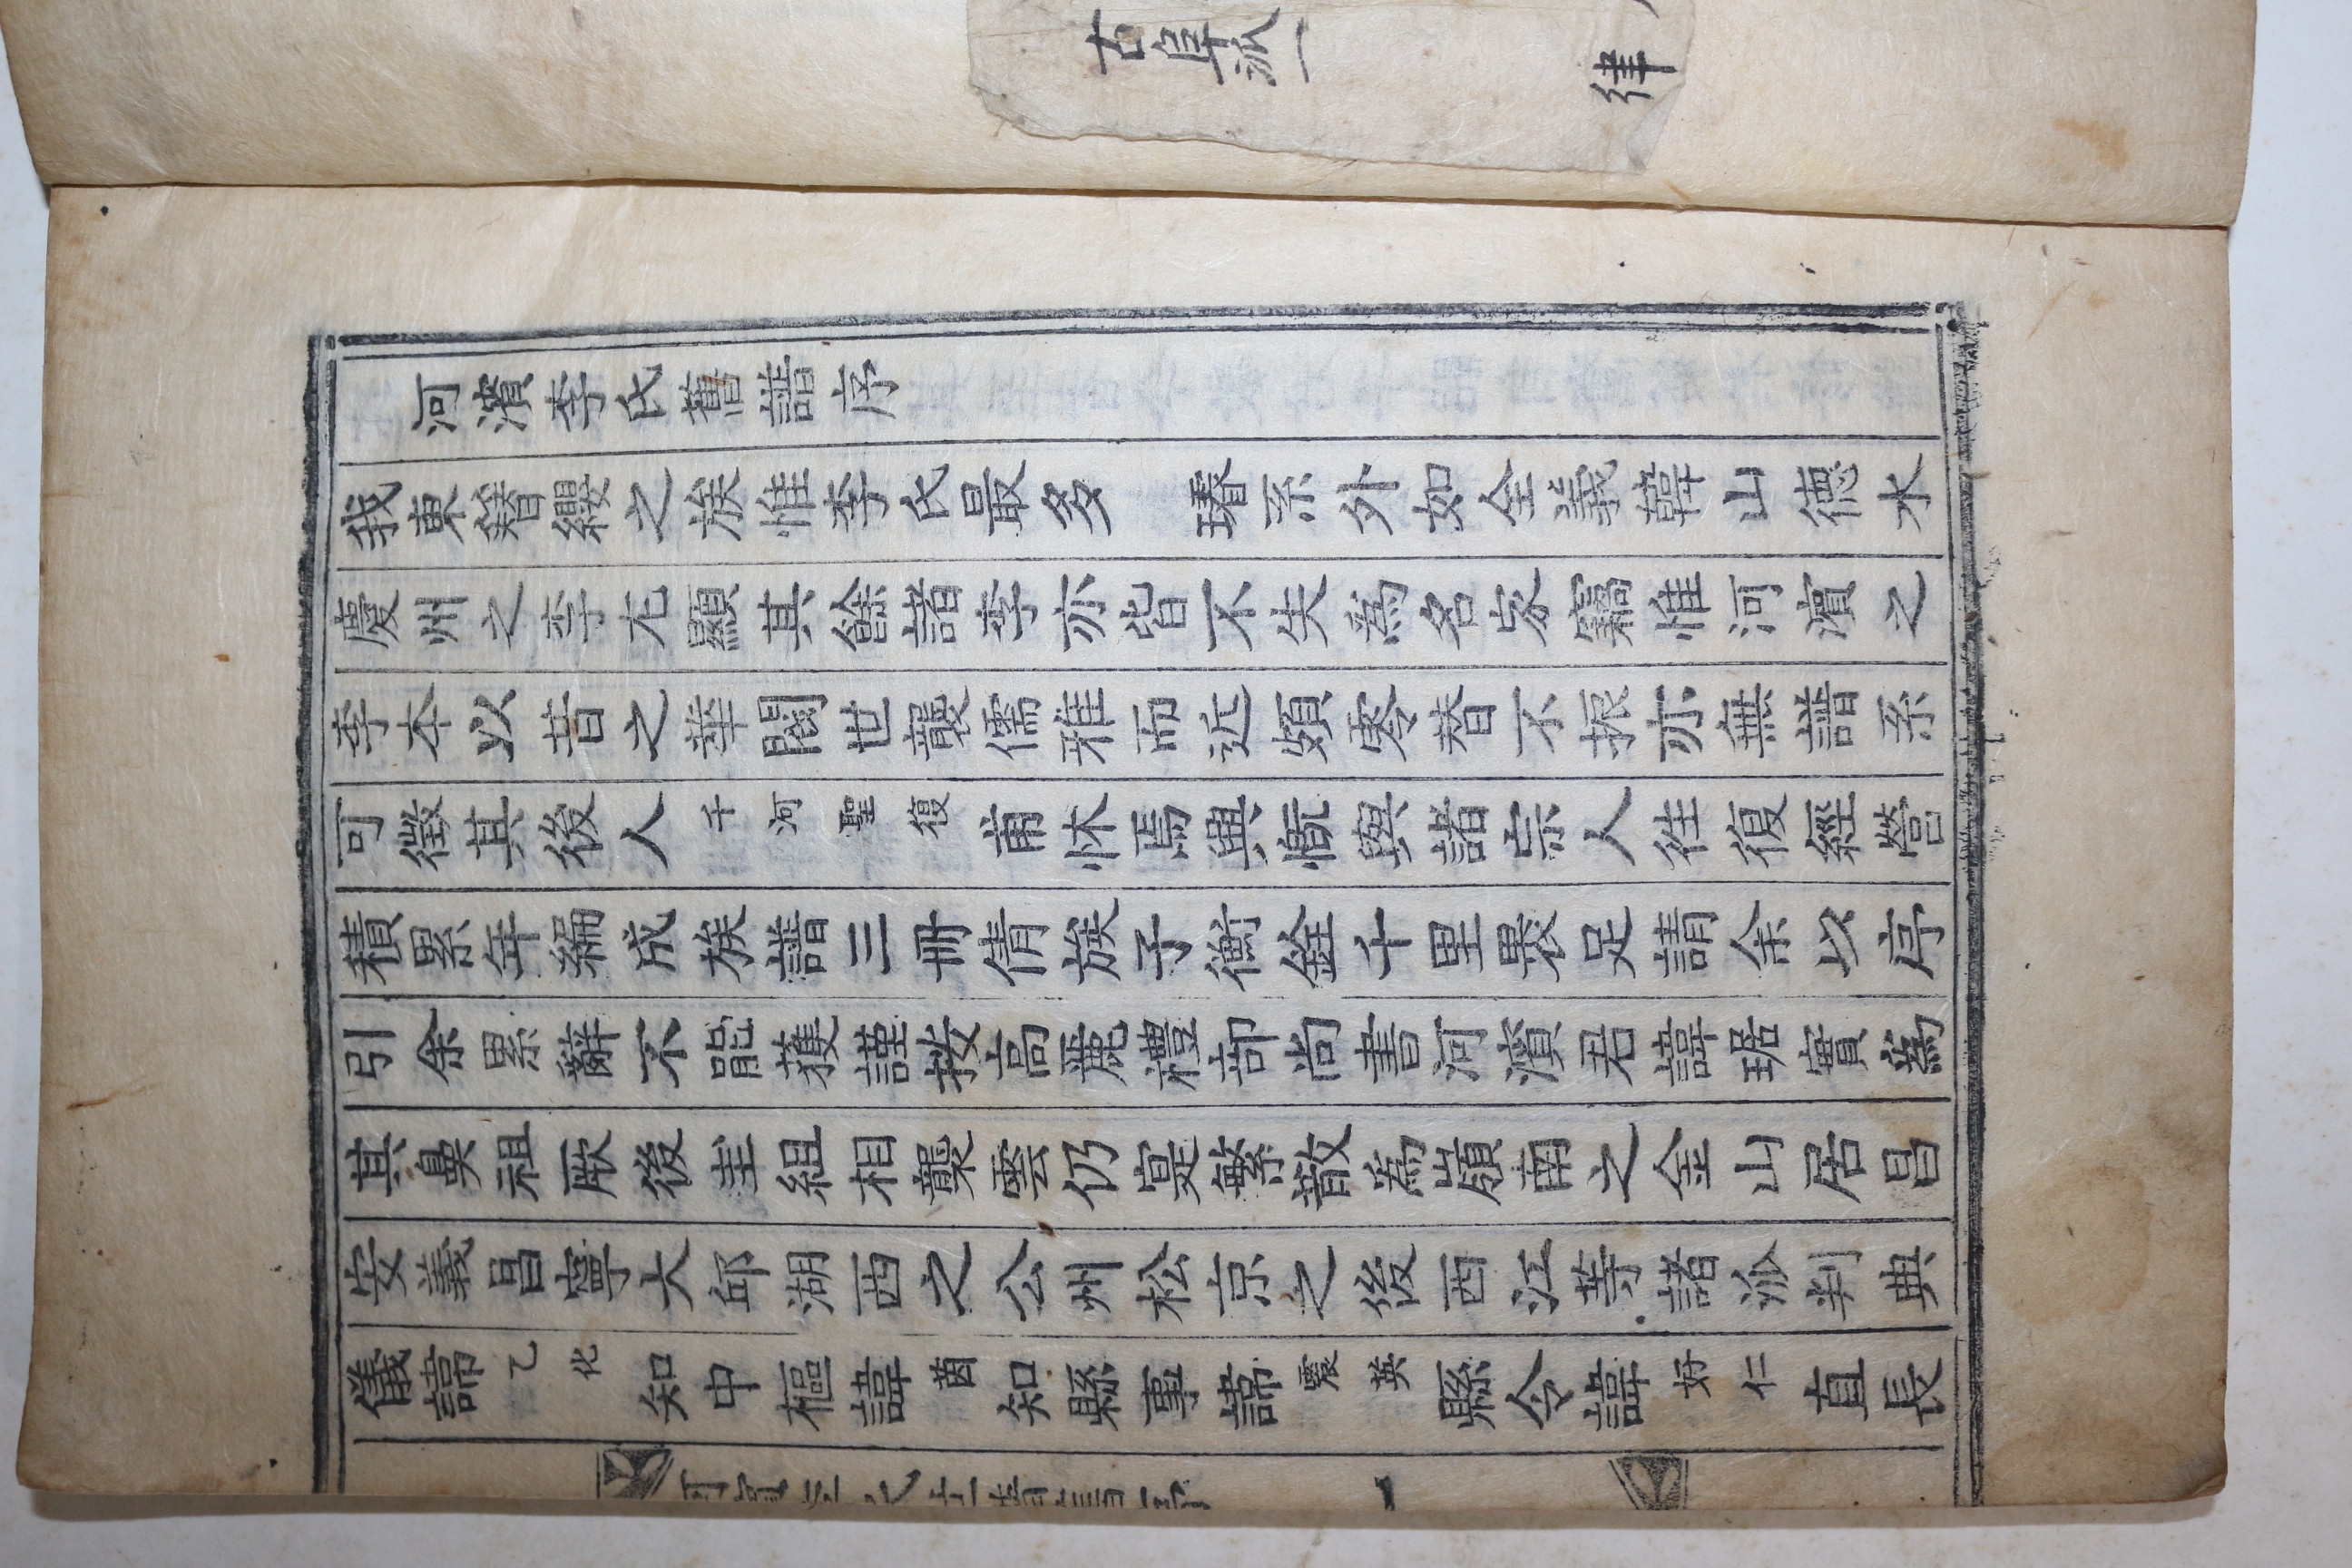 古阜派一
律
河濱李氏舊譜序
我東簪纓之族惟李氏最多 璿系外如全義韓山德水
慶州之李尤顯其餘諸李亦皆不失爲名家竊惟河濱之
李本以昔之華閥世襲儒雅而近頗零替不振亦無譜系
可徵其後人千河聖復甫怵焉興慨與諸宗人徃復經營
積累年編成族譜三冊倩族子衡銓千里裹足請余以序
引余累辭不能獲謹按高麗禮部尙書河濱君諱琚實爲
其鼻祖厥後圭組相襲雲仍寔繁散爲嶺南之金山居昌
安義昌寧大邱湖西之公州松京之後西江等諸派判典
儀諱乙化知中樞諱茵知縣事諱震英縣令諱好仁直長